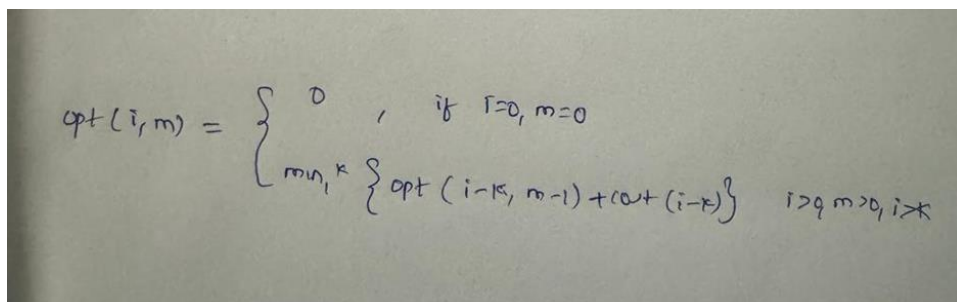 opt(i, m) = { 0 , if i=0, m=0
min, k { opt (i-k, m-1) + cost (i-k) } i>0, m>0, i>k